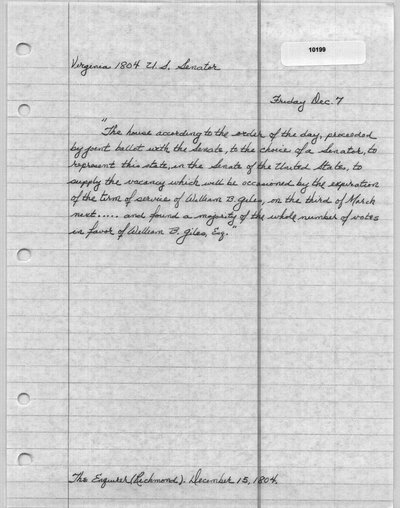 10199
Virginia 1804 U.S. Senator
Friday Dec. 7
"The house according to the order of the day, proceeded
by joint ballot with the Senate, to the choice of a Senator, to
represent this state, in the Senate of the United States, to
supply the vacancy which will be occasioned by the expiration
of the term of service of William B. Giles, on the third of March
next..... and found a majority of the whole number of votes
in favor of William B. Giles, Esq."
The Enquirer (Richmond). December 15, 1804.